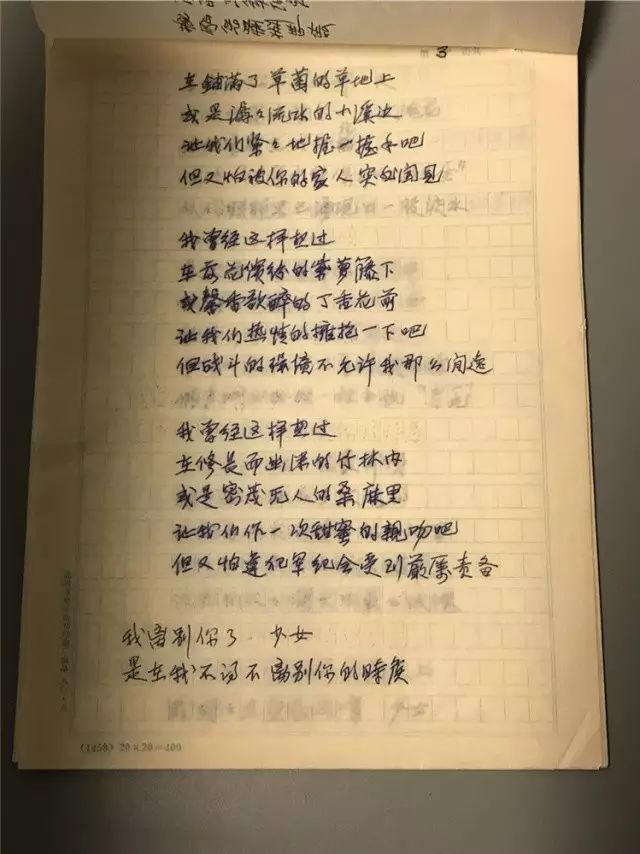 第 3
在铺满了草茵的草地上
或是潺々流水的小溪边
让我们紧々地握一握手吧
但又怕被你的家人突的闻见
我曾经这样想过
在落花缤纷的紫萝藤下
或馨香欲醉的丁香花前
让我们热情的拥抱一下吧
但战斗的环境不允许我那么闲逸
我曾经这样想过
在修长而幽深的竹林内
或是密茂无人的桑麻里
让我们作一次甜蜜的親吻吧
但又怕違犯军纪会受到嚴厲责备
我离别你了 少女
是在我不得不离别你的時候
(1458) 20×20=400